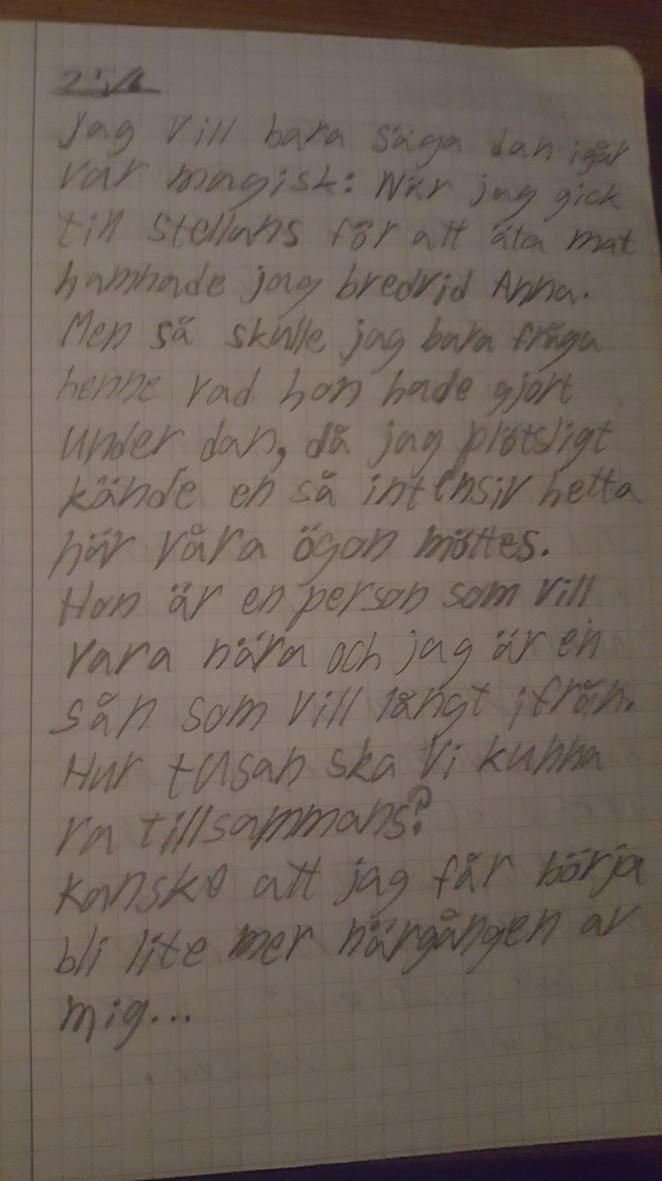 25/6
Jag vill bara säga dan igår
var magisk: När jag gick
till Stellans för att äta mat
hamnade jag bredvid Anna.
Men så skulle jag bara fråga
henne vad hon hade gjort
under dan, då jag plötsligt
kände en så intensiv hetta
när våra ögon möttes.
Hon är en person som vill
vara nära och jag är en
sån som vill långt ifrån.
Hur tusan ska vi kunna
va tillsammans?
Kanske att jag får börja
bli lite mer närgången av
mig...